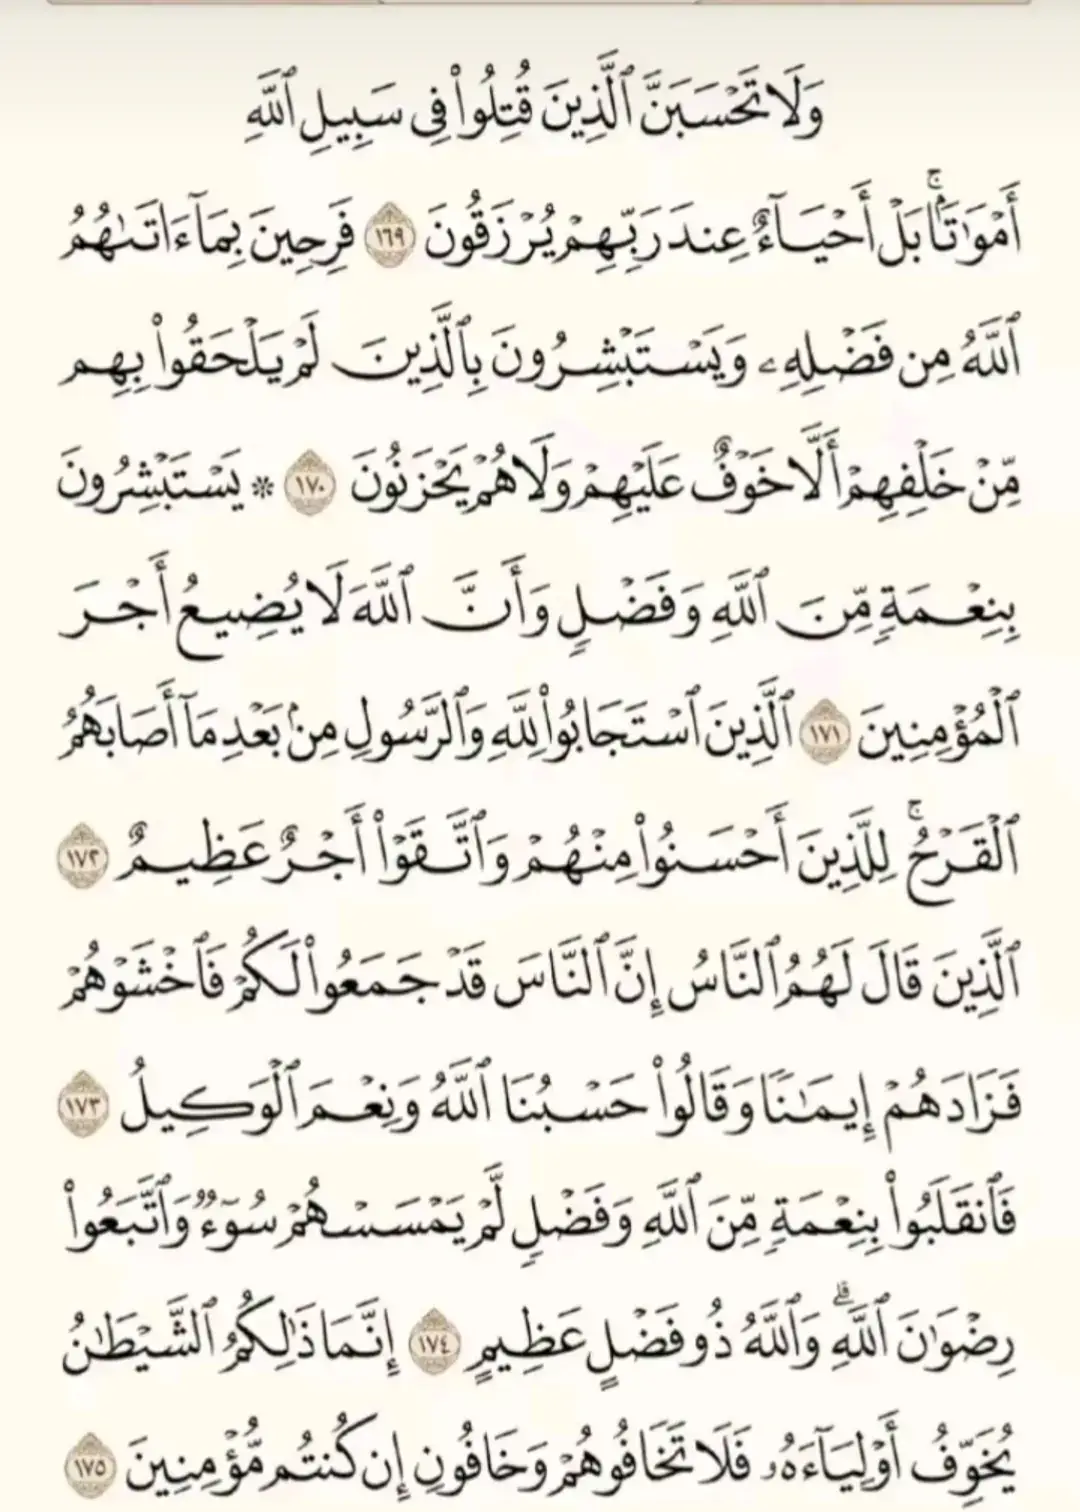 وَلَا تَحْسَبَنَّ ٱلَّذِينَ قُتِلُوا۟ فِى سَبِيلِ ٱللَّهِ
أَمْوَٰتًۢا ۚ بَلْ أَحْيَآءٌ عِندَ رَبِّهِمْ يُرْزَقُونَ ١٦٩ فَرِحِينَ بِمَآ ءَاتَىٰهُمُ
ٱللَّهُ مِن فَضْلِهِۦ وَيَسْتَبْشِرُونَ بِٱلَّذِينَ لَمْ يَلْحَقُوا۟ بِهِم
مِّنْ خَلْفِهِمْ أَلَّا خَوْفٌ عَلَيْهِمْ وَلَا هُمْ يَحْزَنُونَ ١٧٠ * يَسْتَبْشِرُونَ
بِنِعْمَةٍ مِّنَ ٱللَّهِ وَفَضْلٍ وَأَنَّ ٱللَّهَ لَا يُضِيعُ أَجْرَ
ٱلْمُؤْمِنِينَ ١٧١ ٱلَّذِينَ ٱسْتَجَابُوا۟ لِلَّهِ وَٱلرَّسُولِ مِنۢ بَعْدِ مَآ أَصَابَهُمُ
ٱلْقَرْحُ ۚ لِلَّذِينَ أَحْسَنُوا۟ مِنْهُمْ وَٱتَّقَوْا۟ أَجْرٌ عَظِيمٌ ١٧٢
ٱلَّذِينَ قَالَ لَهُمُ ٱلنَّاسُ إِنَّ ٱلنَّاسَ قَدْ جَمَعُوا۟ لَكُمْ فَٱخْشَوْهُمْ
فَزَادَهُمْ إِيمَٰنًا وَقَالُوا۟ حَسْبُنَا ٱللَّهُ وَنِعْمَ ٱلْوَكِيلُ ١٧٣
فَٱنقَلَبُوا۟ بِنِعْمَةٍ مِّنَ ٱللَّهِ وَفَضْلٍ لَّمْ يَمْسَسْهُمْ سُوٓءٌ وَٱتَّبَعُوا۟
رِضْوَٰنَ ٱللَّهِ ۗ وَٱللَّهُ ذُو فَضْلٍ عَظِيمٍ ١٧٤ إِنَّمَا ذَٰلِكُمُ ٱلشَّيْطَٰنُ
يُخَوِّفُ أَوْلِيَآءَهُۥ فَلَا تَخَافُوهُمْ وَخَافُونِ إِن كُنتُم مُّؤْمِنِينَ ١٧٥